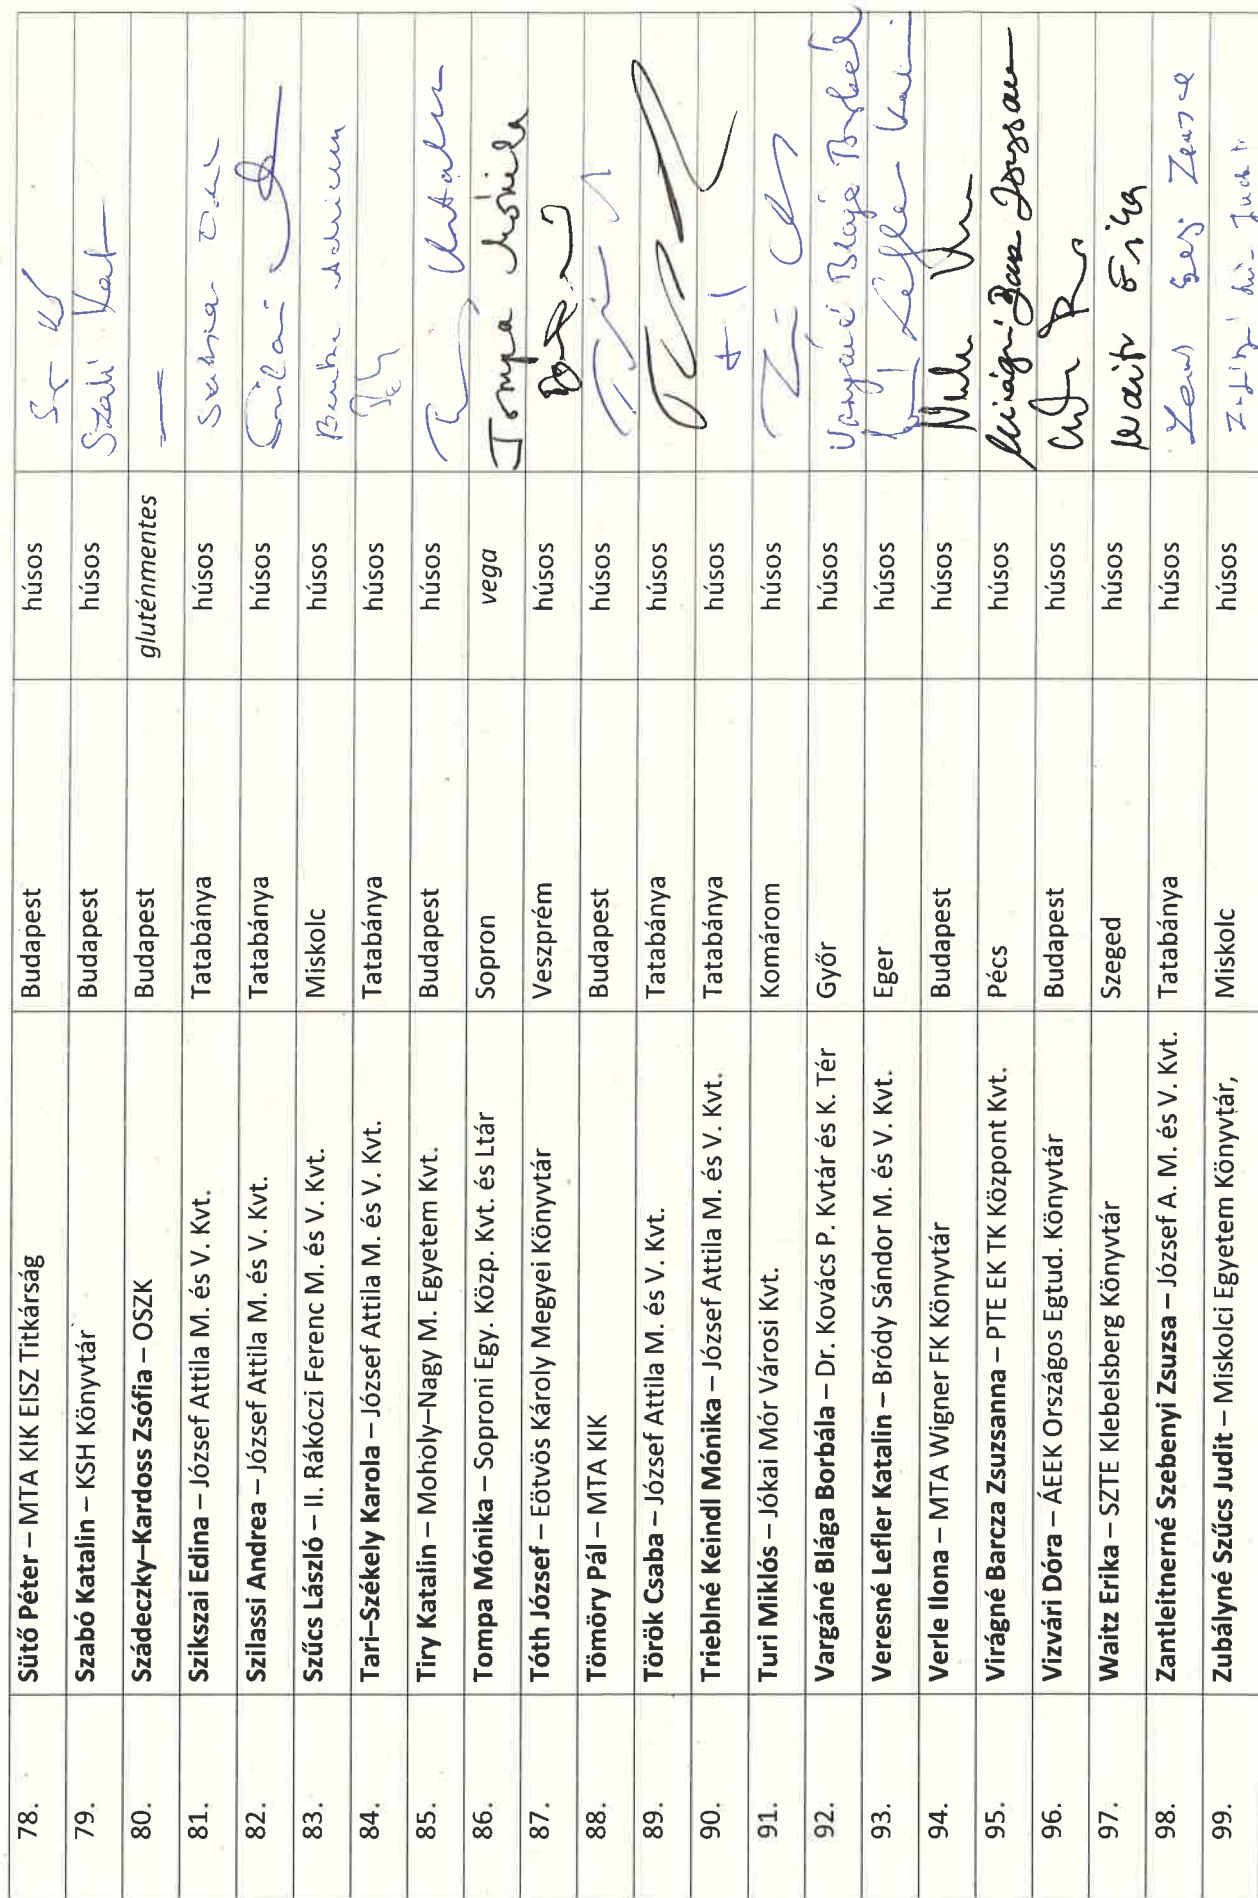 78. Sütő Péter – MTA KIK EISZ Titkárság Budapest húsos
79. Szabó Katalin – KSH Könyvtár Budapest húsos Szabó Kat
80. Szádeczky–Kardoss Zsófia – OSZK Budapest gluténmentes —
81. Szikszai Edina – József Attila M. és V. Kvt. Tatabánya húsos
82. Szilassi Andrea – József Attila M. és V. Kvt. Tatabánya húsos
83. Szűcs László – II. Rákóczi Ferenc M. és V. Kvt. Miskolc húsos
84. Tari–Székely Karola – József Attila M. és V. Kvt. Tatabánya húsos
85. Tiry Katalin – Moholy–Nagy M. Egyetem Kvt. Budapest húsos
86. Tompa Mónika – Soproni Egy. Közp. Kvt. és Ltár Sopron vega Tompa Mónika
87. Tóth József – Eötvös Károly Megyei Könyvtár Veszprém húsos
88. Tömöry Pál – MTA KIK Budapest húsos
89. Török Csaba – József Attila M. és V. Kvt. Tatabánya húsos
90. Trieblné Keindl Mónika – József Attila M. és V. Kvt. Tatabánya húsos
91. Turi Miklós – Jókai Mór Városi Kvt. Komárom húsos
92. Vargáné Blága Borbála – Dr. Kovács P. Kvtár és K. Tér Győr húsos Vargáné Blága Borbála
93. Veresné Lefler Katalin – Bródy Sándor M. és V. Kvt. Eger húsos
94. Verle Ilona – MTA Wigner FK Könyvtár Budapest húsos
95. Virágné Barcza Zsuzsanna – PTE EK TK Központ Kvt. Pécs húsos
96. Vizvári Dóra – ÁEEK Országos Egtud. Könyvtár Budapest húsos
97. Waitz Erika – SZTE Klebelsberg Könyvtár Szeged húsos Waitz Erika
98. Zantleitnerné Szebenyi Zsuzsa – József A. M. és V. Kvt. Tatabánya húsos
99. Zubályné Szűcs Judit – Miskolci Egyetem Könyvtár, Miskolc húsos